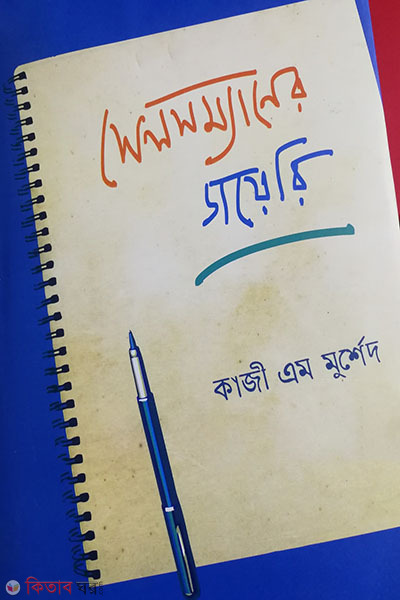 সেলসম্যানের
ডায়েরি
কাজী এম মুর্শেদ
কিতাব ঘর